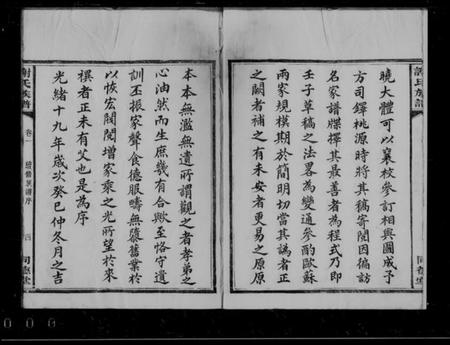 謝氏族譜
曉大體可以襄校參訂相與圖成予
方司鐸桃源時將其稿寄閱因偏訪
名家譜牒擇其最善者為程式乃即
壬子草稿之法畧為變通參酌歐蘇
兩家規模期於簡明切當其譌者正
之闕者補之有未安者更易之原原
本本無濫無遺所謂觀之者孝弟之
心油然而生庶幾有合歟至恪守遺
訓丕振家聲食德服疇無隳舊業於
以恢宏閥閱增家乘之光所望於來
禩者正未有艾也是為序
光緒十九年歲次癸巳仲冬月之吉
謝氏族譜
卷一
續修族譜序
四